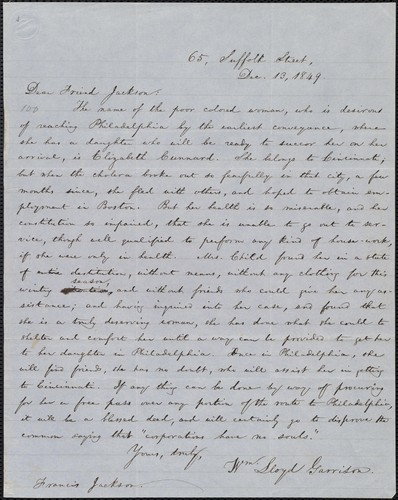 65, Suffolk Street,
Dec. 13, 1849.
Dear Friend Jackson:
The name of the poor colored woman, who is desirous
of reaching Philadelphia by the earliest conveyance, where
she has a daughter who will be ready to succor her on her
arrival, is Elizabeth Cunnard. She belongs to Cincinnati;
but when the cholera broke out so fearfully in that city, a few
months since, she fled with others, and hoped to obtain em-
ployment in Boston. But her health is so miserable, and her
constitution so impaired, that she is unable to go out to ser-
vice, though well qualified to perform any kind of house-work,
if she were only in health. Mrs. Child found her in a state
of entire destitution, without means, without any clothing for this
wintry season, and without friends who could give her any as-
sistance; and having inquired into her case, and found that
she is a truly deserving woman, she has done what she could to
shelter and comfort her until a way can be provided to get her
to her daughter in Philadelphia. Once in Philadelphia, she
will find friends, she has no doubt, who will assist her in getting
to Cincinnati. If any thing can be done by way of procuring
for her a free pass over any portion of the route to Philadelphia,
it will be a blessed deed, and will certainly go to disprove the
common saying that "corporations have no souls."
Yours, truly,
Wm. Lloyd Garrison.
Francis Jackson.